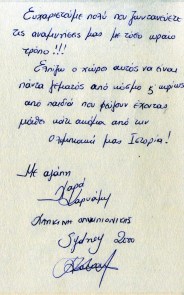 Ευχαριστούμε πολύ που ζωντανεύετε
τις αναμνήσεις μας με τόσο ωραίο
τρόπο!!!
Ελπίζω ο χώρος αυτός να είναι
πάντα γεμάτος από κόσμο & κυρίως
από παιδιά που φεύγουν έχοντας
μάθει κάτι ακόμα από την
Ολυμπιακή μας Ιστορία!
Με αγάπη
Χαρά
Ολυμπιονίκης
Sydney 2000